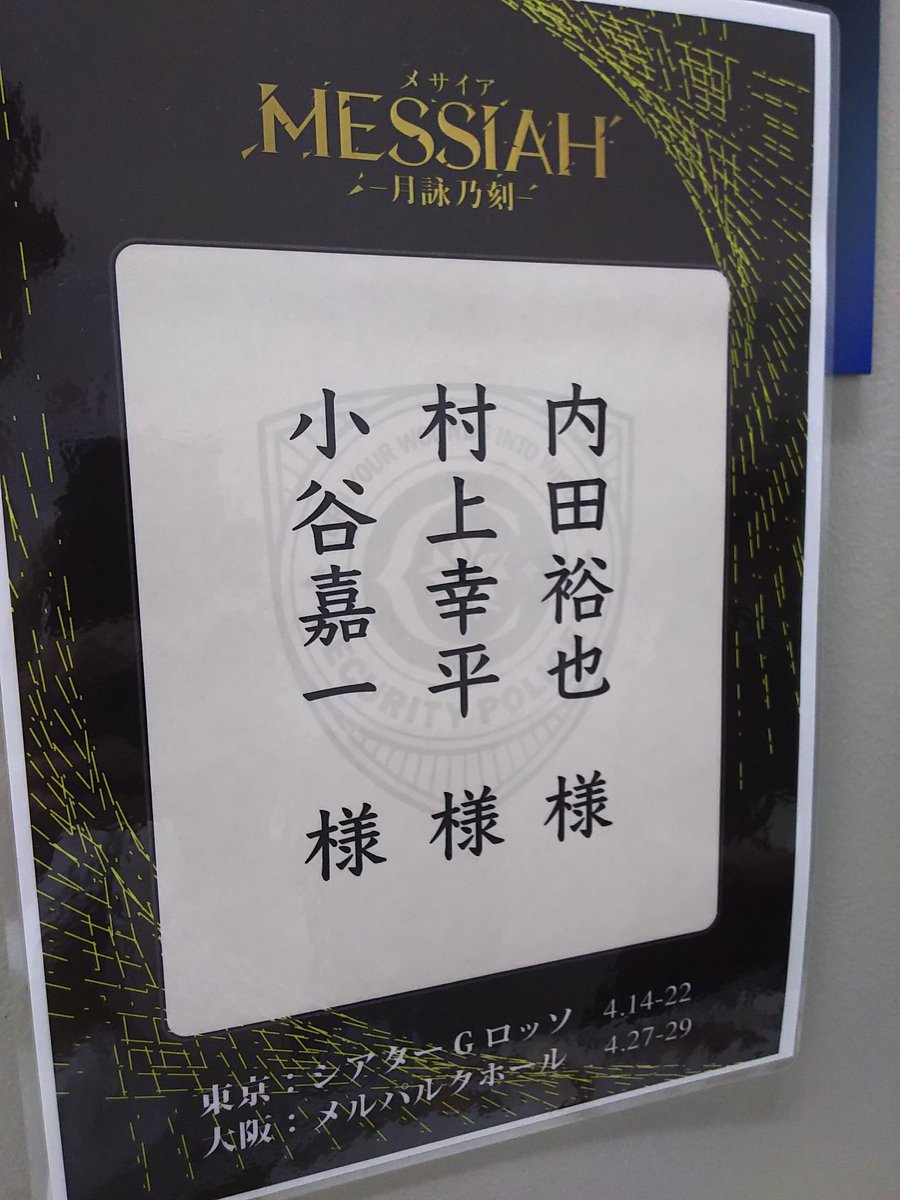 メサイア
MESSIAH
―月詠乃刻―
内田裕也 様
村上幸平 様
小谷嘉一 様
東京：シアターGロッソ 4.14-22
大阪：メルパルクホール 4.27-29